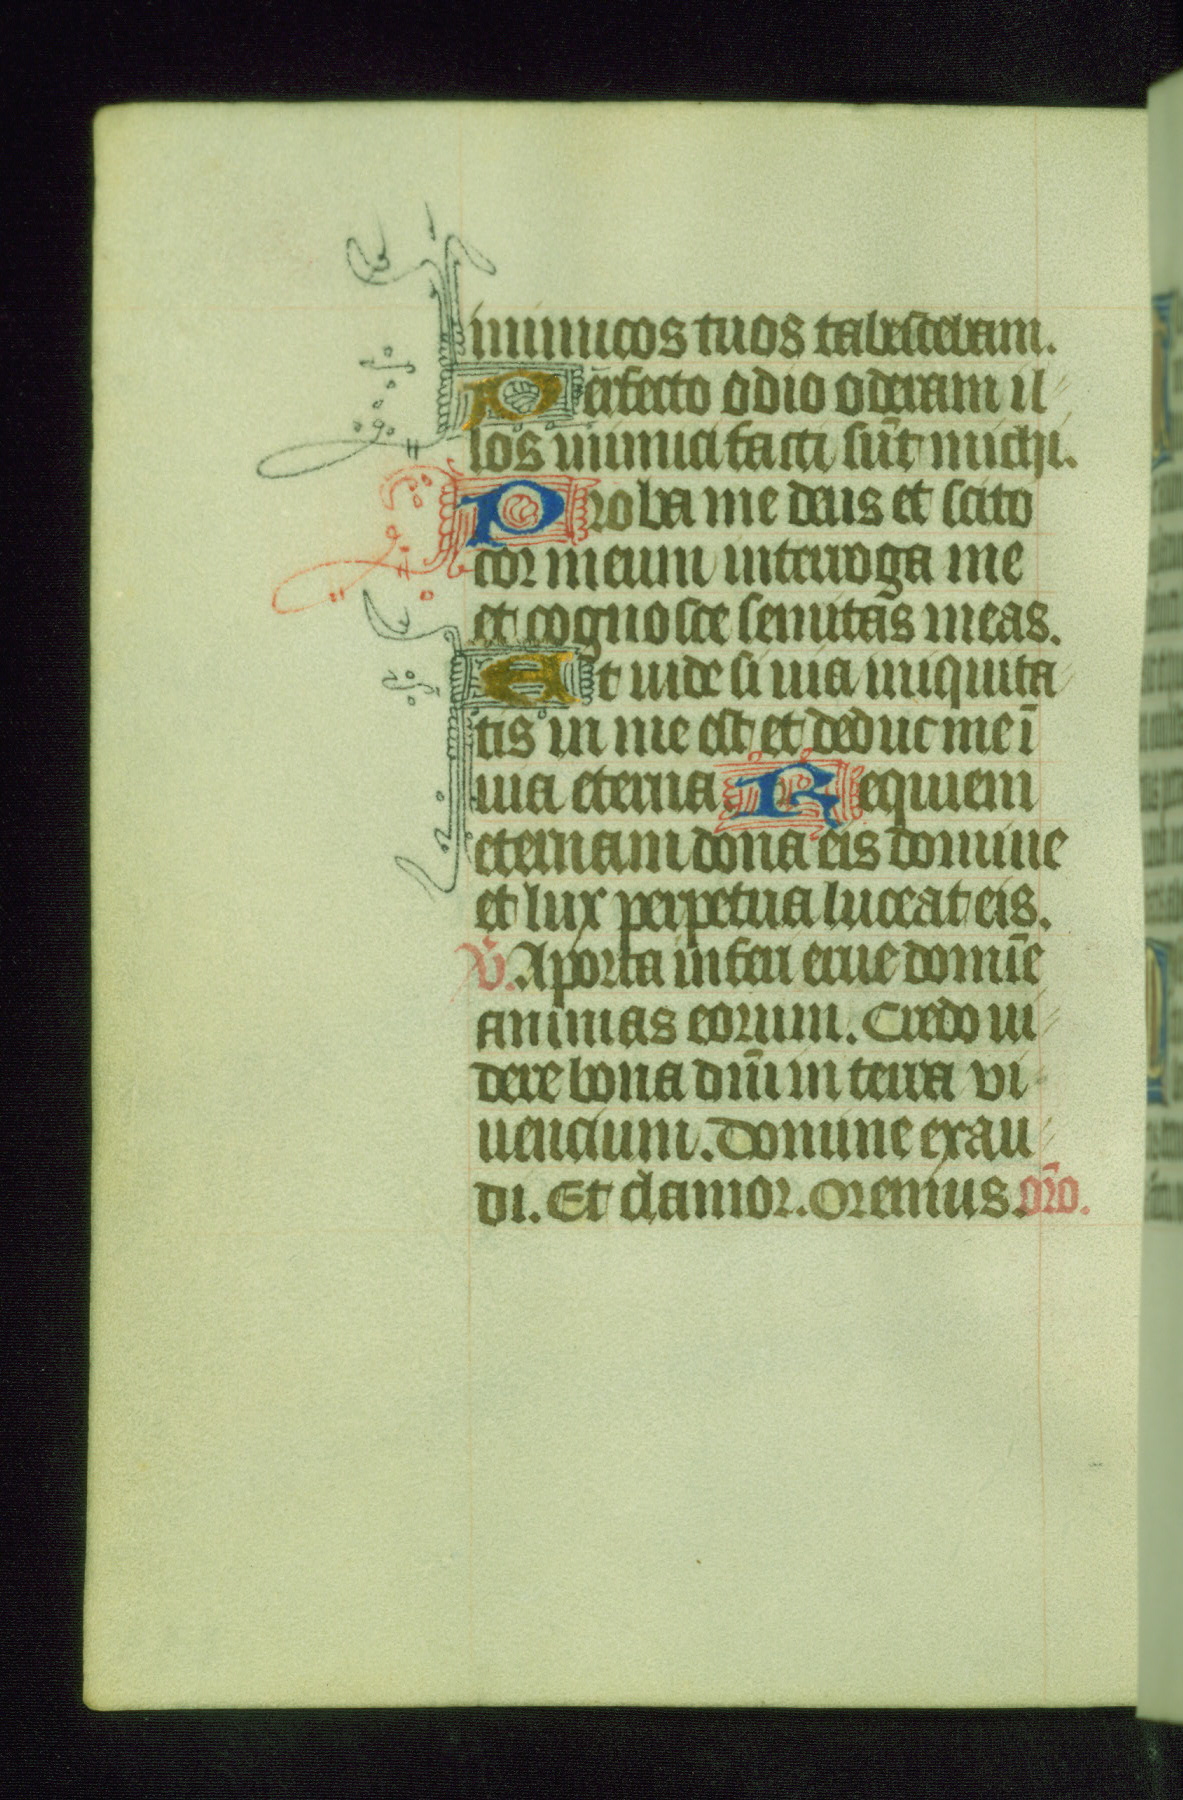 inimicos tuos tabescebam.
Perfecto odio oderam il
los inimici facti sūt michi.
Proba me deus et scito
cor meum interroga me
et cognosce semitas meas.
Et uide si uia iniquita
tis in me est et deduc me ī
uia eterna. Requiem
eternam dona eis domine
et lux perpetua luceat eis.
V̄. A porta inferi erue domīe
animas eorum. Credo ui
dere bona dñi in terra vi
uencium. Domine exau
di. Et clamor. Oremus. or̄o.